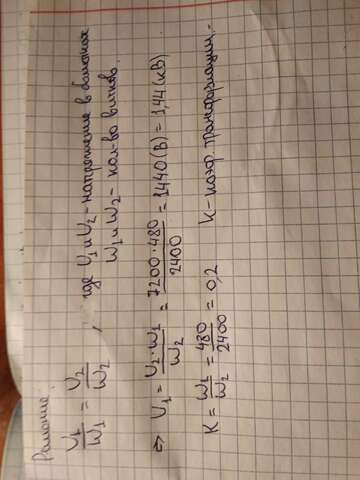 Решение:
U1/W1 = U2/W2 , где U1 и U2 - напряжение в обмотках
W1 и W2 - кол-во витков.
=> U1 = U2·W1/W2 = 7200·480/2400 = 1440 (В) = 1,44 (кВ)
K = W1/W2 = 480/2400 = 0,2 K - коэф. трансформации.